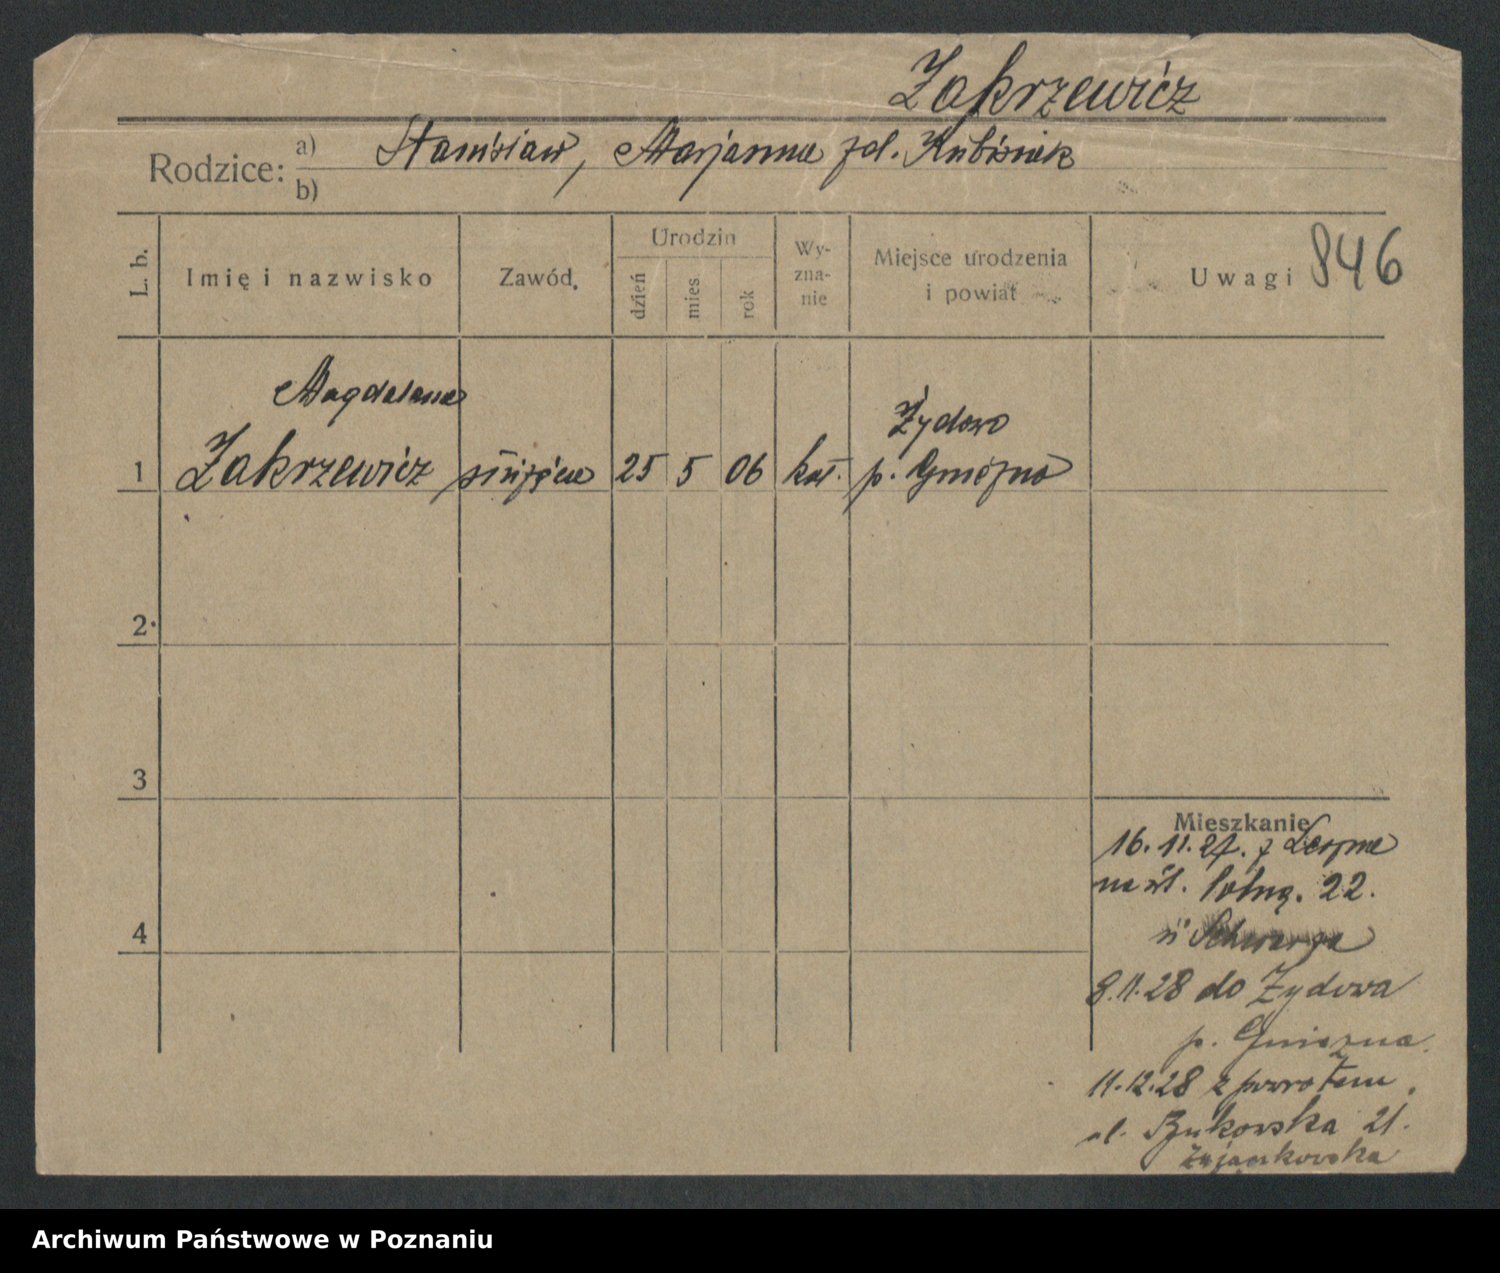 Zakrzewicz
Rodzice: a) Stanisław, Marjanna zd. Kubisiak
b)
L. b.
Imię i nazwisko
Zawód
Urodzin
dzień
mies.
rok
Wy-
zna-
nie
Miejsce urodzenia
i powiat
Uwagi 846
Magdalena
Żydowo
1 Zakrzewicz służąca 25 5 06 kat. p. Gniezno
2
3
4
Mieszkanie
16.11.27. z Leszna
na ul. Polną. 22.
u Schwarza
8.11.28 do Żydowa
p. Gniezna
11.12.28 z powrotem
ul. Bukowska 21.
Zającakowska
Archiwum Państwowe w Poznaniu